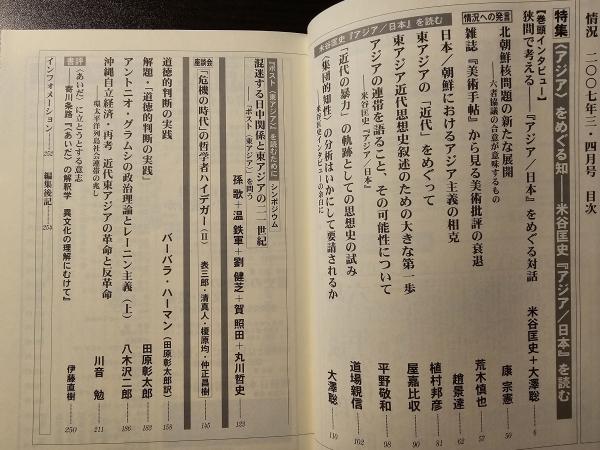 情況 二〇〇七年三・四月号 目次
特集〈アジア〉をめぐる知――米谷匡史『アジア／日本』を読む
【巻頭インタビュー】
狭間で考える――『アジア／日本』をめぐる対話 米谷匡史＋大澤聡 6
情況への発言
北朝鮮核問題の新たな展開
――六者協議の合意が意味するもの 康 宗憲 50
雑誌『美術手帖』から見る美術批評の衰退 荒木慎也 57
米谷匡史『アジア／日本』を読む
日本／朝鮮におけるアジア主義の相克 趙景達 62
東アジアの「近代」をめぐって 植村邦彦 81
東アジア近代思想史叙述のための大きな第一歩 屋嘉比収 90
アジアの連帯を語ること、その可能性について
――米谷匡史『アジア／日本』 平野敬和 98
「近代の暴力」の軌跡としての思想史の試み 道場親信 102
〈集団的知性〉の分析はいかにして要請されるか
――米谷匡史インタビューの余白に 大澤聡 110
『ポスト〈東アジア〉』を読むために シンポジウム
混迷する日中関係と東アジアの二一世紀
――『ポスト〈東アジア〉』を問う
孫 歌＋温 鉄軍＋劉 健芝＋賀 照田＋丸川哲史 123
座談会
「危機の時代」の哲学者ハイデガー（Ⅱ） 表三郎・清真人・榎原均・仲正昌樹 145
道徳的判断の実践 バーバラ・ハーマン（田原彰太郎訳） 158
解題・「道徳的判断の実践」 田原彰太郎 182
アントニオ・グラムシの政治理論とレーニン主義（上） 八木沢二郎 186
沖縄自立経済・再考 近代東アジアの革命と反革命
――環太平洋列島社会連帯の兆し 川音 勉 211
書評
〈あいだ〉に立とうとする意志
――寄川条路『〈あいだ〉の解釈学 異文化の理解にむけて』 伊藤直樹 250
インフォメーション――252 編集後記――254